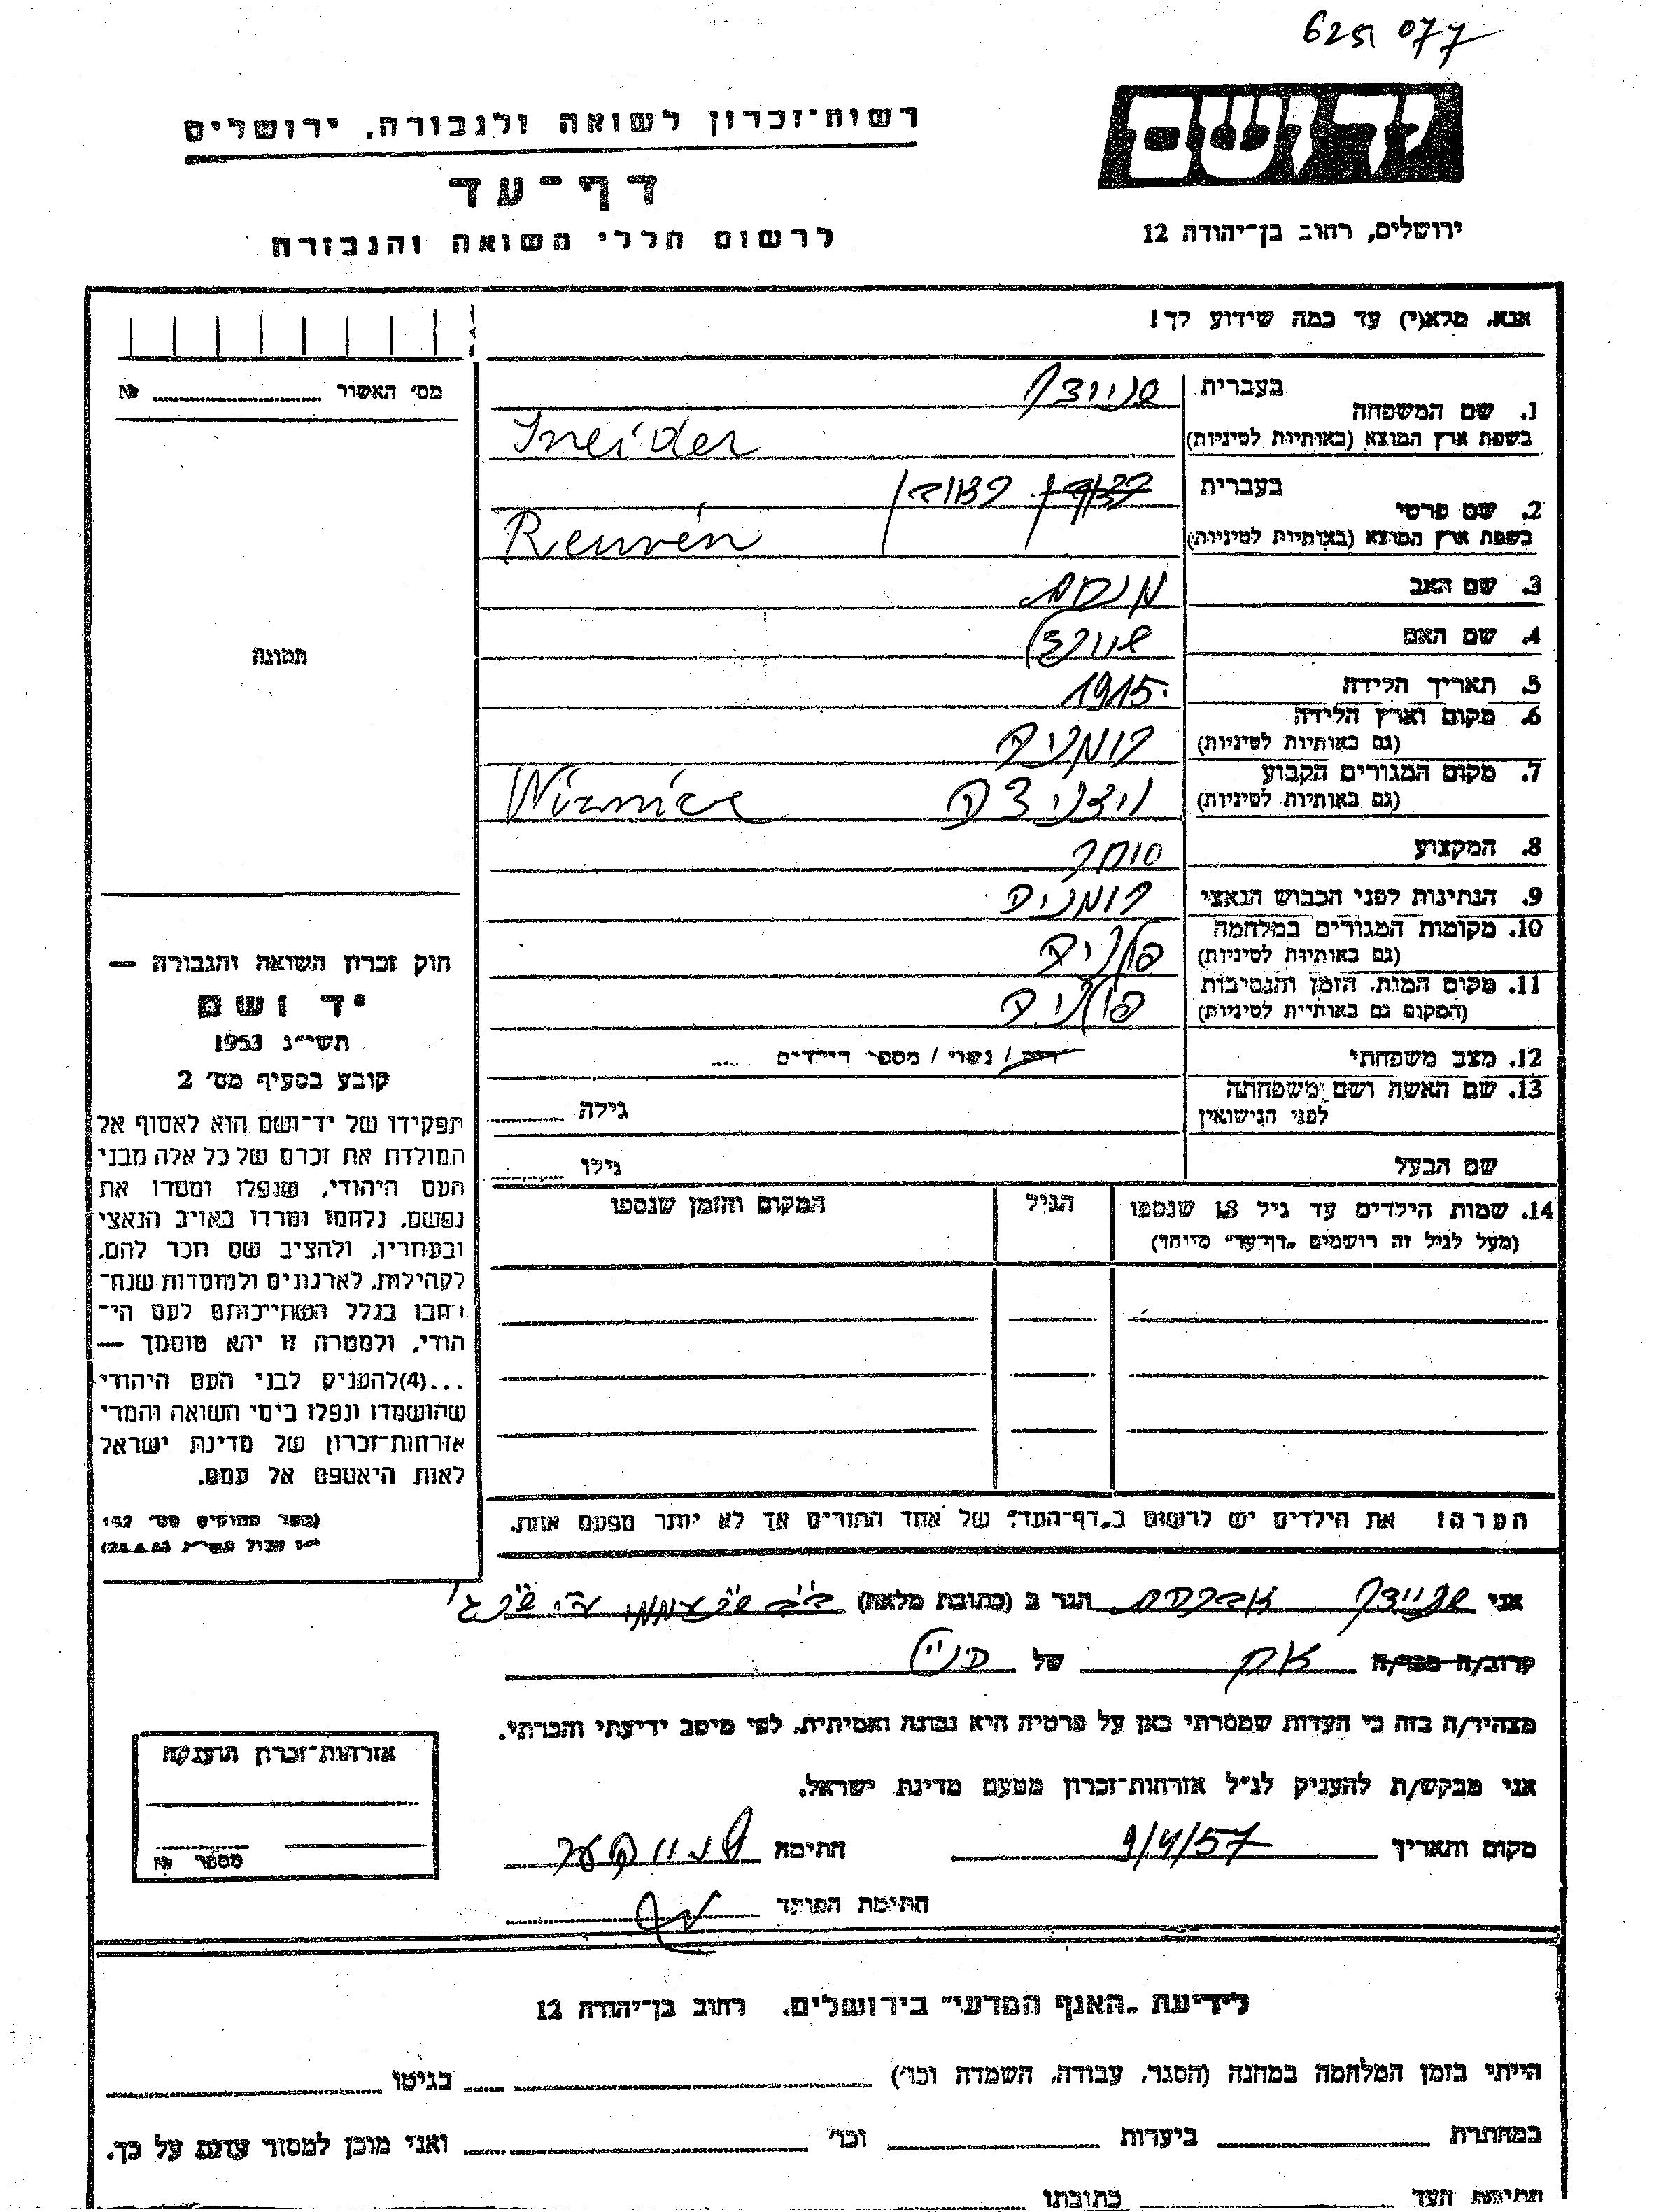 077
יד ושם
רשות־זכרון לשואה ולגבורה, ירושלים
דף־עד
לרשום חללי השואה והגבורה
ירושלים, רחוב בן־יהודה 12
אנא, מלא(י) עד כמה שידוע לך!
מס' האשור № 
1. שם המשפחה בעברית שניידר
בשפת ארץ המוצא (באותיות לטיניות) Sneider
2. שם פרטי בעברית ראובן
בשפת ארץ המוצא (באותיות לטיניות) Reuvén
3. שם האב מנחם
4. שם האם
5. תאריך הלידה 1915
6. מקום וארץ הלידה רומניה
(גם באותיות לטיניות)
7. מקום המגורים הקבוע ויזניצה
(גם באותיות לטיניות)
8. המקצוע סוחר
9. הנתינות לפני הכבוש הנאצי רומניה
10. מקומות המגורים במלחמה פולניה
(גם באותיות לטיניות)
11. מקום המות, הזמן והנסיבות פולניה
(המקום גם באותיות לטיניות)
12. מצב משפחתי רוק / נשוי / מספר הילדים
13. שם האשה ושם משפחתה גילה
לפני הנישואין
שם הבעל גילו
14. שמות הילדים עד גיל 18 שנספו הגיל המקום והזמן שנספו
(מעל לגיל זה רושמים "דף־עד" מיוחד)
הערה! את הילדים יש לרשום ב"דף־העד" של אחד ההורים אך לא יותר מפעם אחת.
תמונה
חוק זכרון השואה והגבורה —
יד ושם
תשי"ג 1953
קובע בסעיף מס' 2
תפקידו של יד־ושם הוא לאסוף אל
המולדת את זכרם של כל אלה מבני
העם היהודי, שנפלו ומסרו את
נפשם, נלחמו ומרדו באויב הנאצי
ובעוזריו, ולהציב שם וזכר להם,
לקהילות, לארגונים ולמוסדות שנח־
רבו בגלל השתייכותם לעם הי־
הודי, ולמטרה זו יהא מוסמך —
...(4) להעניק לבני העם היהודי
שהושמדו ונפלו בימי השואה והמרי
אזרחות־זכרון של מדינת ישראל
לאות היאספם אל עמם.
(ספר החוקים מס' 132
אני שניידר אברהם הגר ב (כתובת מלאה)
קרוב/ה מכר/ה אח של הנ"ל
מצהיר/ה בזה כי העדות שמסרתי כאן על פרטיה היא נכונה ואמיתית, לפי מיטב ידיעתי והכרתי.
אני מבקש/ת להעניק לנ"ל אזרחות־זכרון מטעם מדינת ישראל.
מקום ותאריך 9/4/57 חתימה
חתימת הפוקד
אזרחות־זכרון הוענקה
מספר №
לידיעת "האגף המדעי" בירושלים. רחוב בן־יהודה 12
הייתי בזמן המלחמה במחנה (הסגר, עבודה, השמדה וכו') בגיטו
במחתרת ביערות וכו' ואני מוכן למסור עדות על כך.
חתימת העד כתובתו